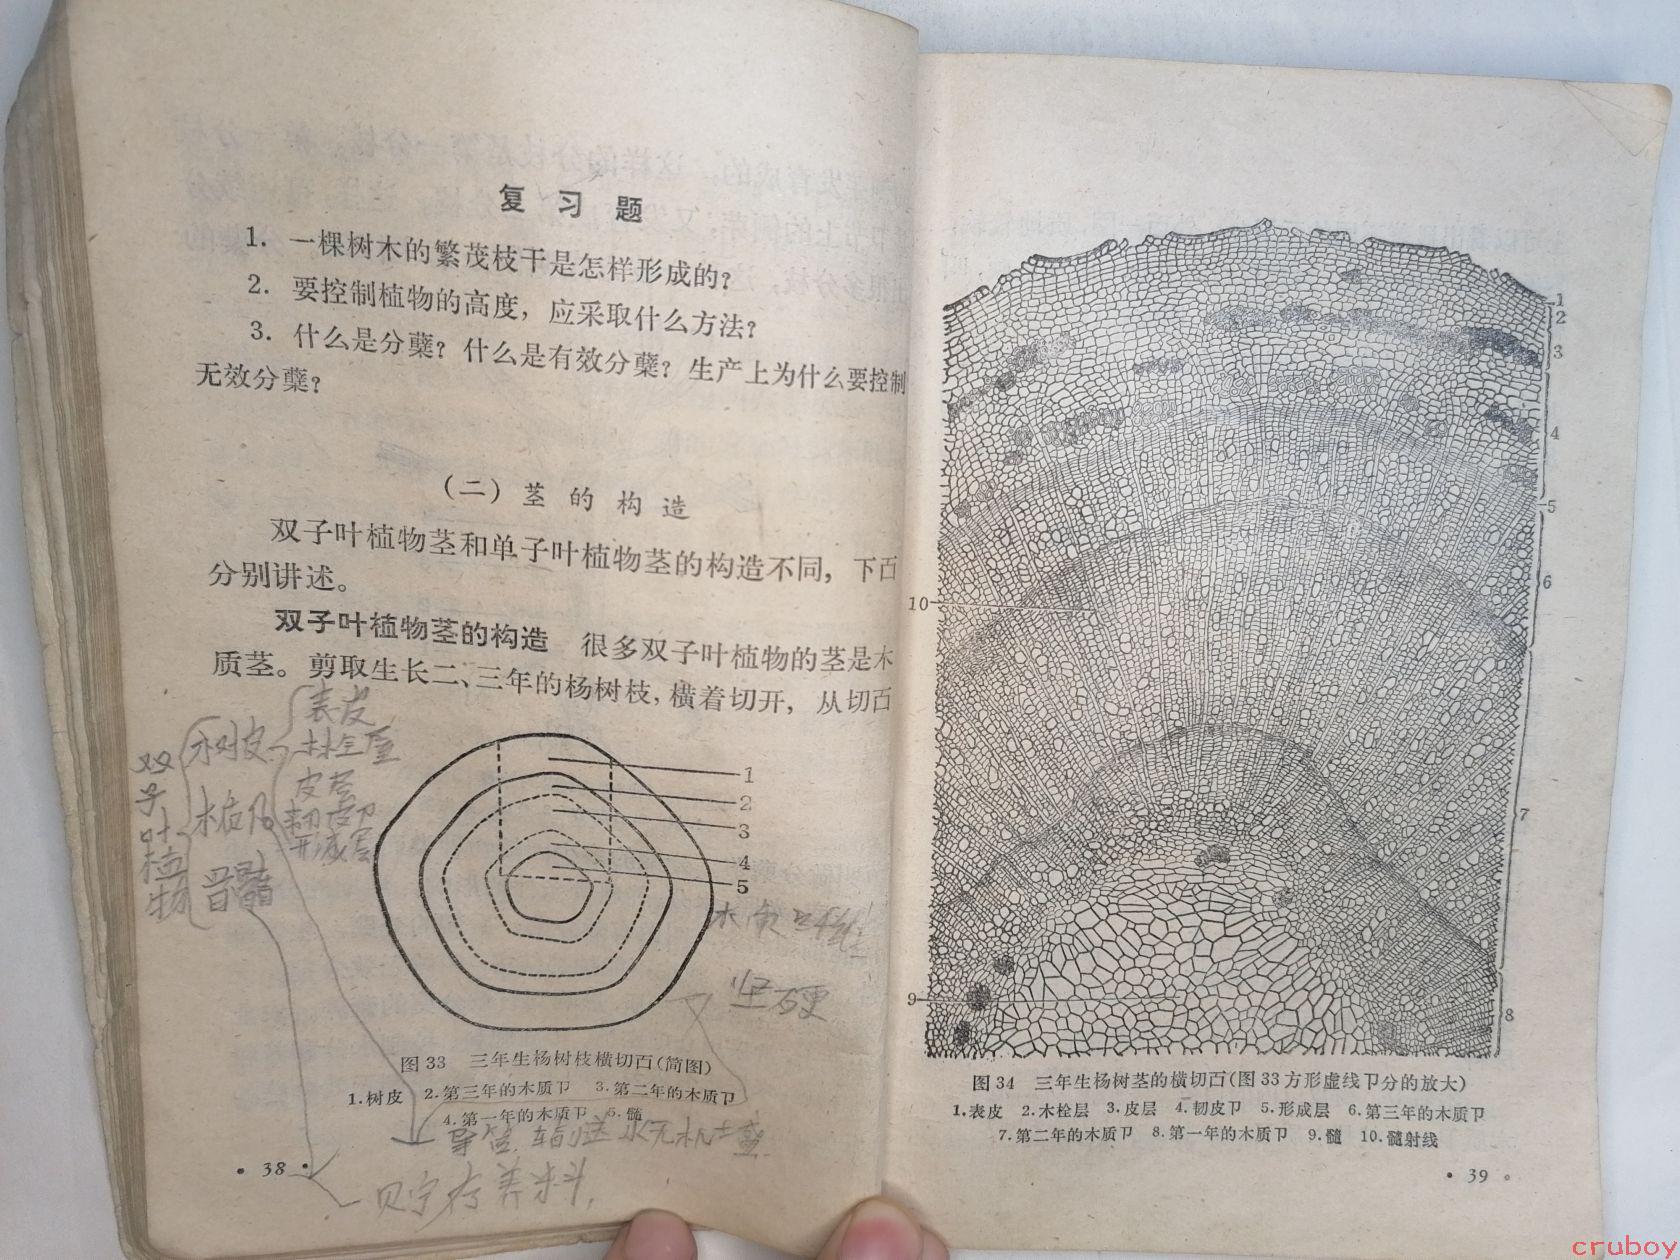 复习题
1. 一棵树木的繁茂枝干是怎样形成的?
2. 要控制植物的高度，应采取什么方法?
3. 什么是分蘖? 什么是有效分蘖? 生产上为什么要控制
无效分蘖?
(二) 茎的构造
双子叶植物茎和单子叶植物茎的构造不同，下百
分别讲述。
双子叶植物茎的构造 很多双子叶植物的茎是木
质茎。剪取生长二、三年的杨树枝，横着切开，从切百
双子叶植物
树皮
表皮
木栓层
皮层
韧皮卩
形成层
髓
1
2
3
4
5
木质
坚硬
图 33 三年生杨树枝横切百(简图)
1.树皮 2.第三年的木质卩 3.第二年的木质卩
4.第一年的木质卩 5.髓
导管 输送水无机盐
贮存养料
• 38 •
1
2
3
4
5
6
7
8
9
10
图 34 三年生杨树茎的横切百(图 33 方形虚线卩分的放大)
1.表皮 2.木栓层 3.皮层 4.韧皮卩 5.形成层 6.第三年的木质卩
7.第二年的木质卩 8.第一年的木质卩 9.髓 10.髓射线
• 39 •
cruboy